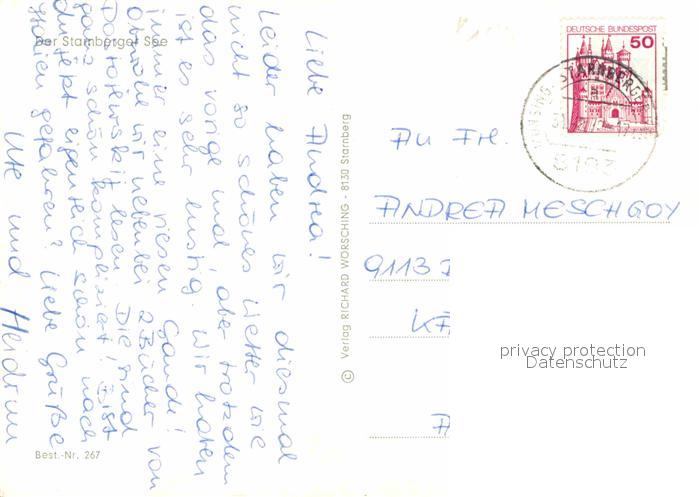 Der Starnberger See
Liebe Andrea!
Leider haben wir diesmal
nicht so schönes Wetter wie
das vorige mal, aber trotzdem
ist es sehr lustig. Wir haben
immer eine riesen Gaudi!
Obwohl wir nebenbei 2 Bücher von
Dostojewskij lesen. Die sind
ganz schön kompliziert! Bist
du jetzt eigentlich schon nach
Italien gefahren? Liebe Grüße
Ute und Heidrun
Best.-Nr. 267
© Verlag RICHARD WÖRSCHING - 8130 Starnberg
DEUTSCHE BUNDESPOST
50
STARNBERGER
8193
AN FRL.
ANDREA MESCHGOY
91137
privacy protection
Datenschutz